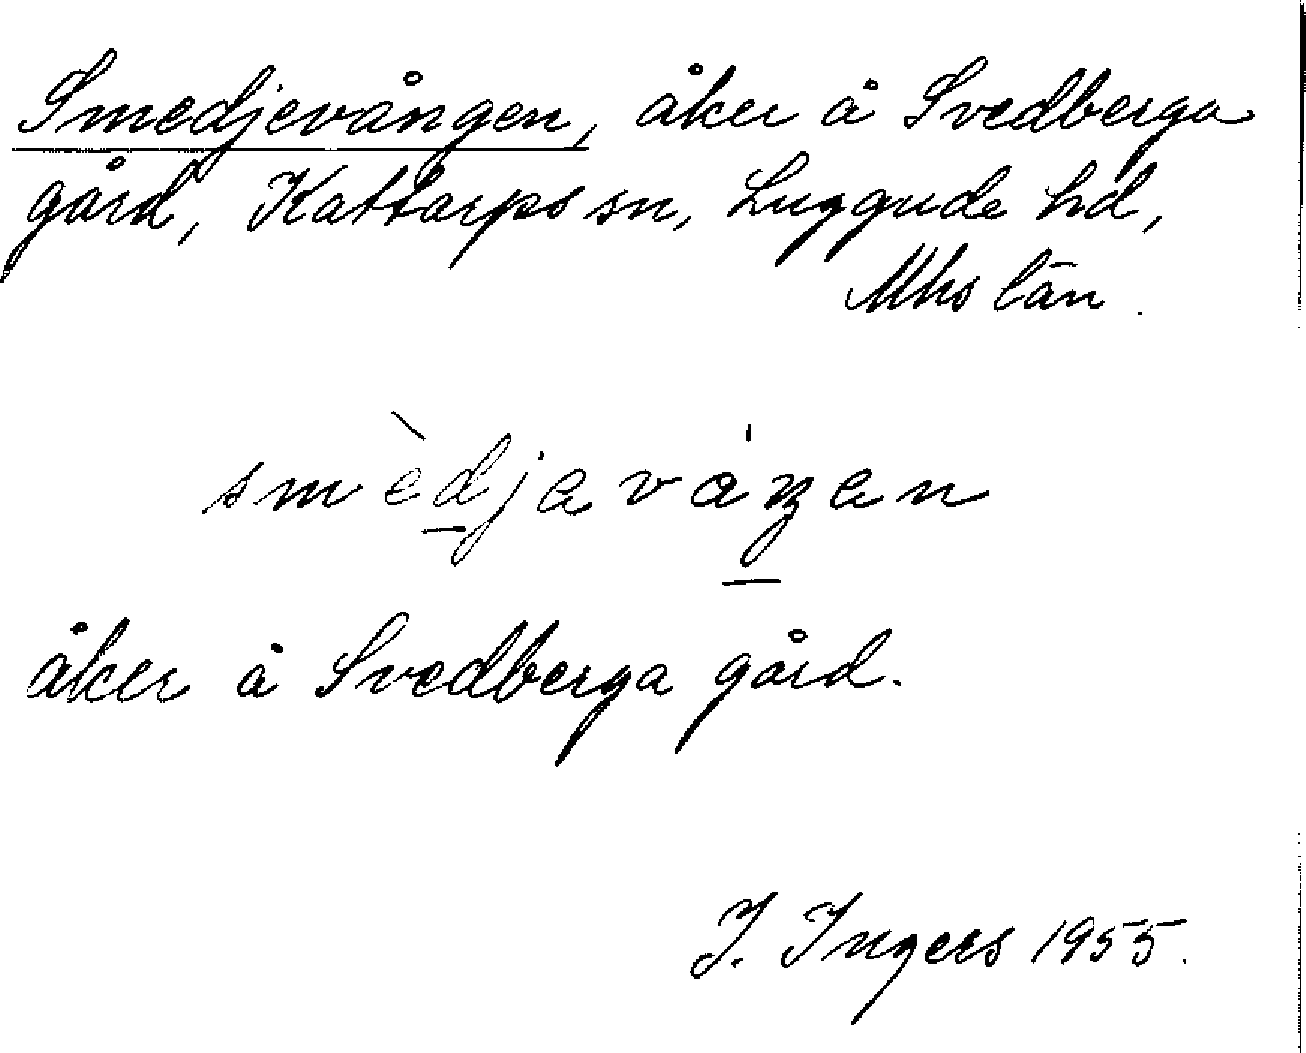 Smedjevången, åker å Svedberga
gård, Kattarps sn, Luggude hd,
Mhs län.
smèdjavåŋan
åker å Svedberga gård.
I. Ingers 1955.